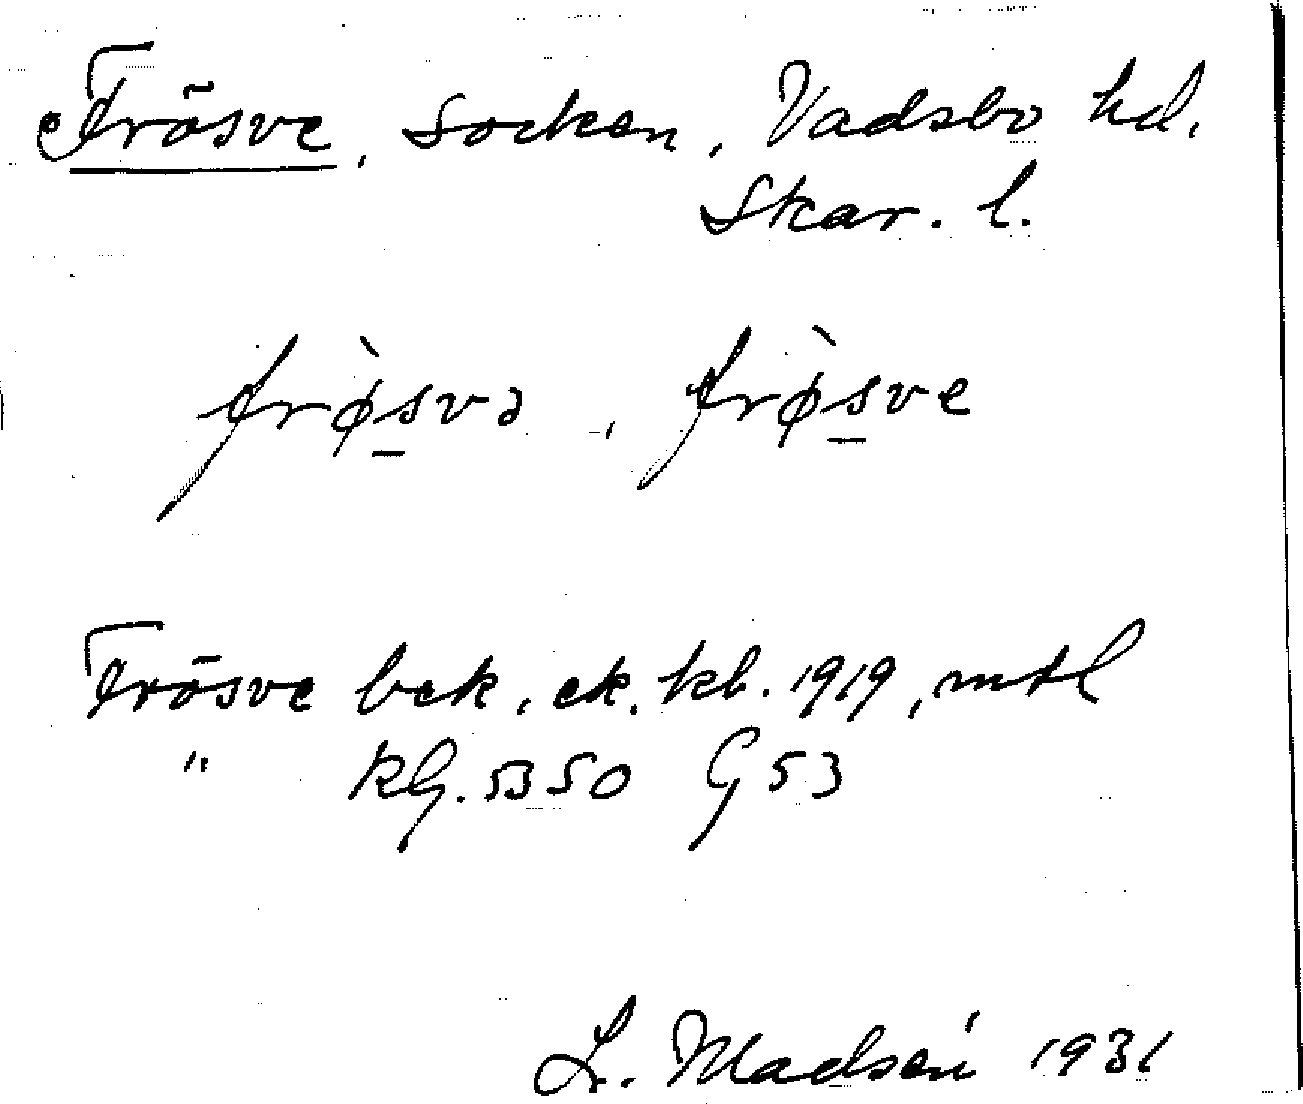 Frösve, Socken, Vadsbo hd.
Skar. l.
frø̀s̲və, frø̀s̲ve
Frösve bek. ek. kb. 1919, mtl
" KG. 5350 G 53
L. Madsén 1931